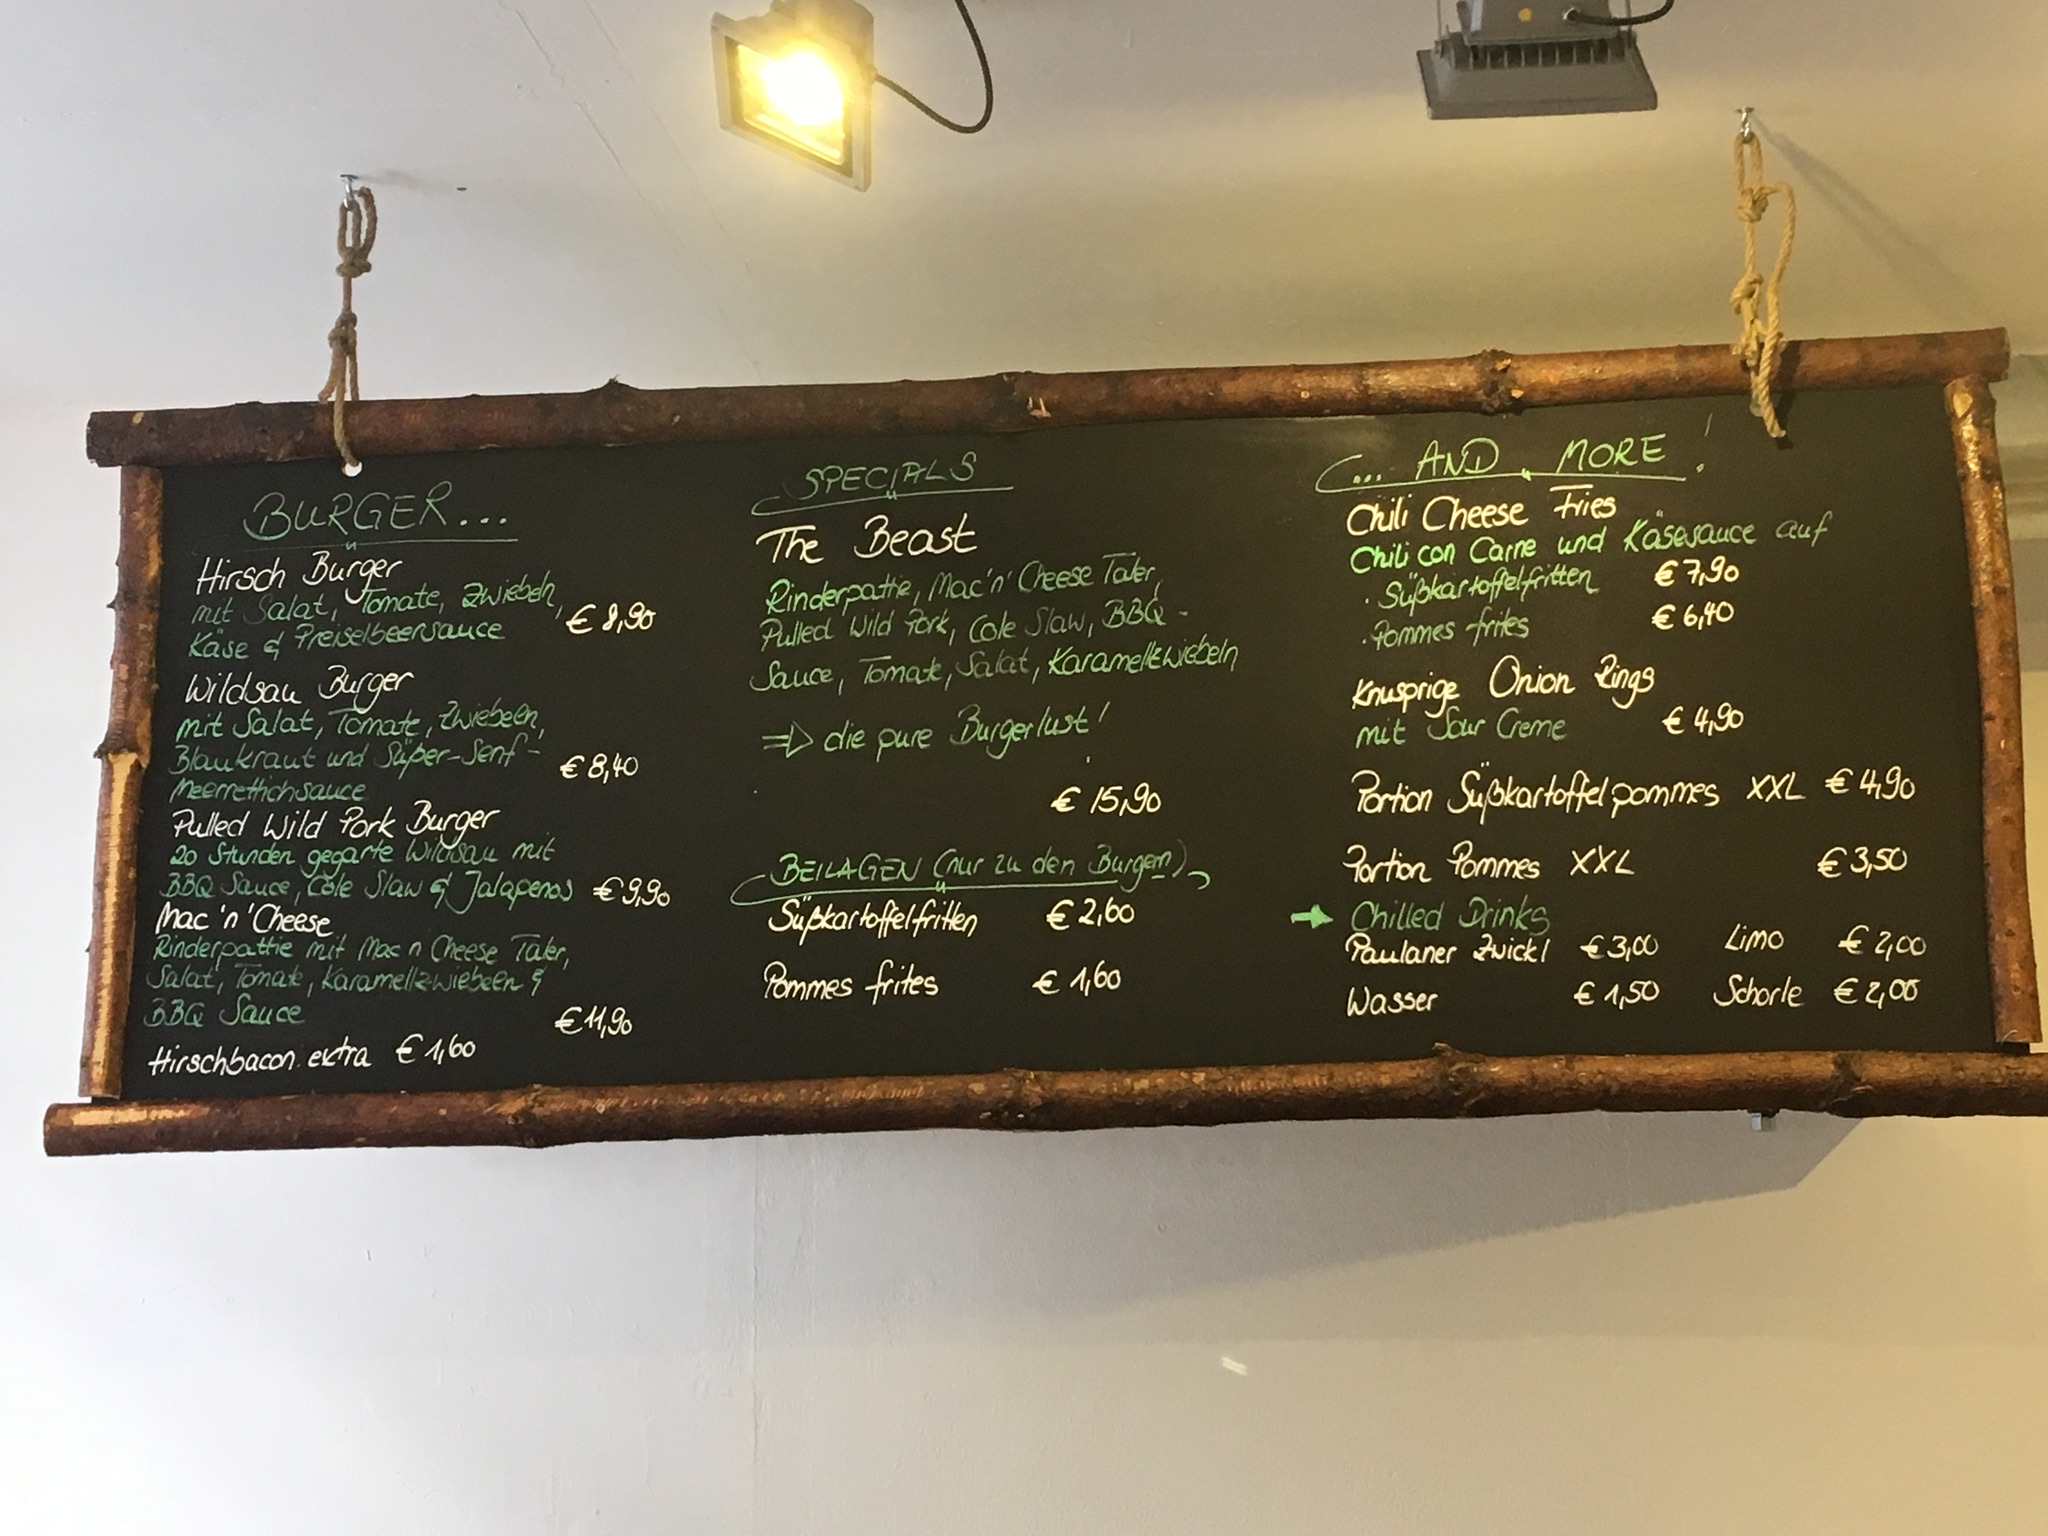 BURGER...
Hirsch Burger
mit Salat, Tomate, Zwiebeln,
Käse & Preiselbeersauce € 8,90
Wildsau Burger
mit Salat, Tomate, Zwiebeln,
Blaukraut und Süßer-Senf-
Meerrettichsauce € 8,40
Pulled Wild Pork Burger
20 Stunden gegarte Wildsau mit
BBQ Sauce, Cole Slaw & Jalapenos € 9,90
Mac 'n' Cheese
Rinderpattie mit Mac n Cheese Taler,
Salat, Tomate, Karamellzwiebeln &
BBQ Sauce € 11,90
Hirschbacon extra € 1,60
SPECIALS
The Beast
Rinderpattie, Mac 'n' Cheese Taler,
Pulled Wild Pork, Cole Slaw, BBQ-
Sauce, Tomate, Salat, Karamellzwiebeln
⇒ die pure Burgerlust!
€ 15,90
BEILAGEN (nur zu den Burgern)
Süßkartoffelfritten € 2,60
Pommes frites € 1,60
... AND MORE!
Chili Cheese Fries
Chili con Carne und Käsesauce auf
· Süßkartoffelfritten € 7,90
· Pommes frites € 6,40
Knusprige Onion Rings
mit Sour Creme € 4,90
Portion Süßkartoffelpommes XXL € 4,90
Portion Pommes XXL € 3,50
→ Chilled Drinks
Paulaner Zwickl € 3,00 Limo € 2,00
Wasser € 1,50 Schorle € 2,00